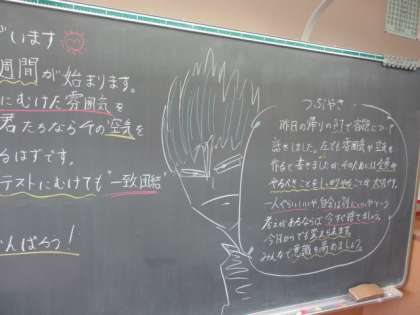 ざいます
週間が始まります。
にむけた雰囲気を
君たちなら今の空気を
るはずです。
テストにむけても"一致団結"
んばろう!
つぶやき
昨日の帰りのSTで容認について
話をしました。左も雰囲気や空気を
作ると書きましたが、そのためには全員が
やるべきことをしっかりやることが大切です。
一人ぐらいいいや、自分は別にいいやという
考えがあるならば今すぐ捨てましょう。
今日からでも変えられます。
みんなで意識を高めましょう。